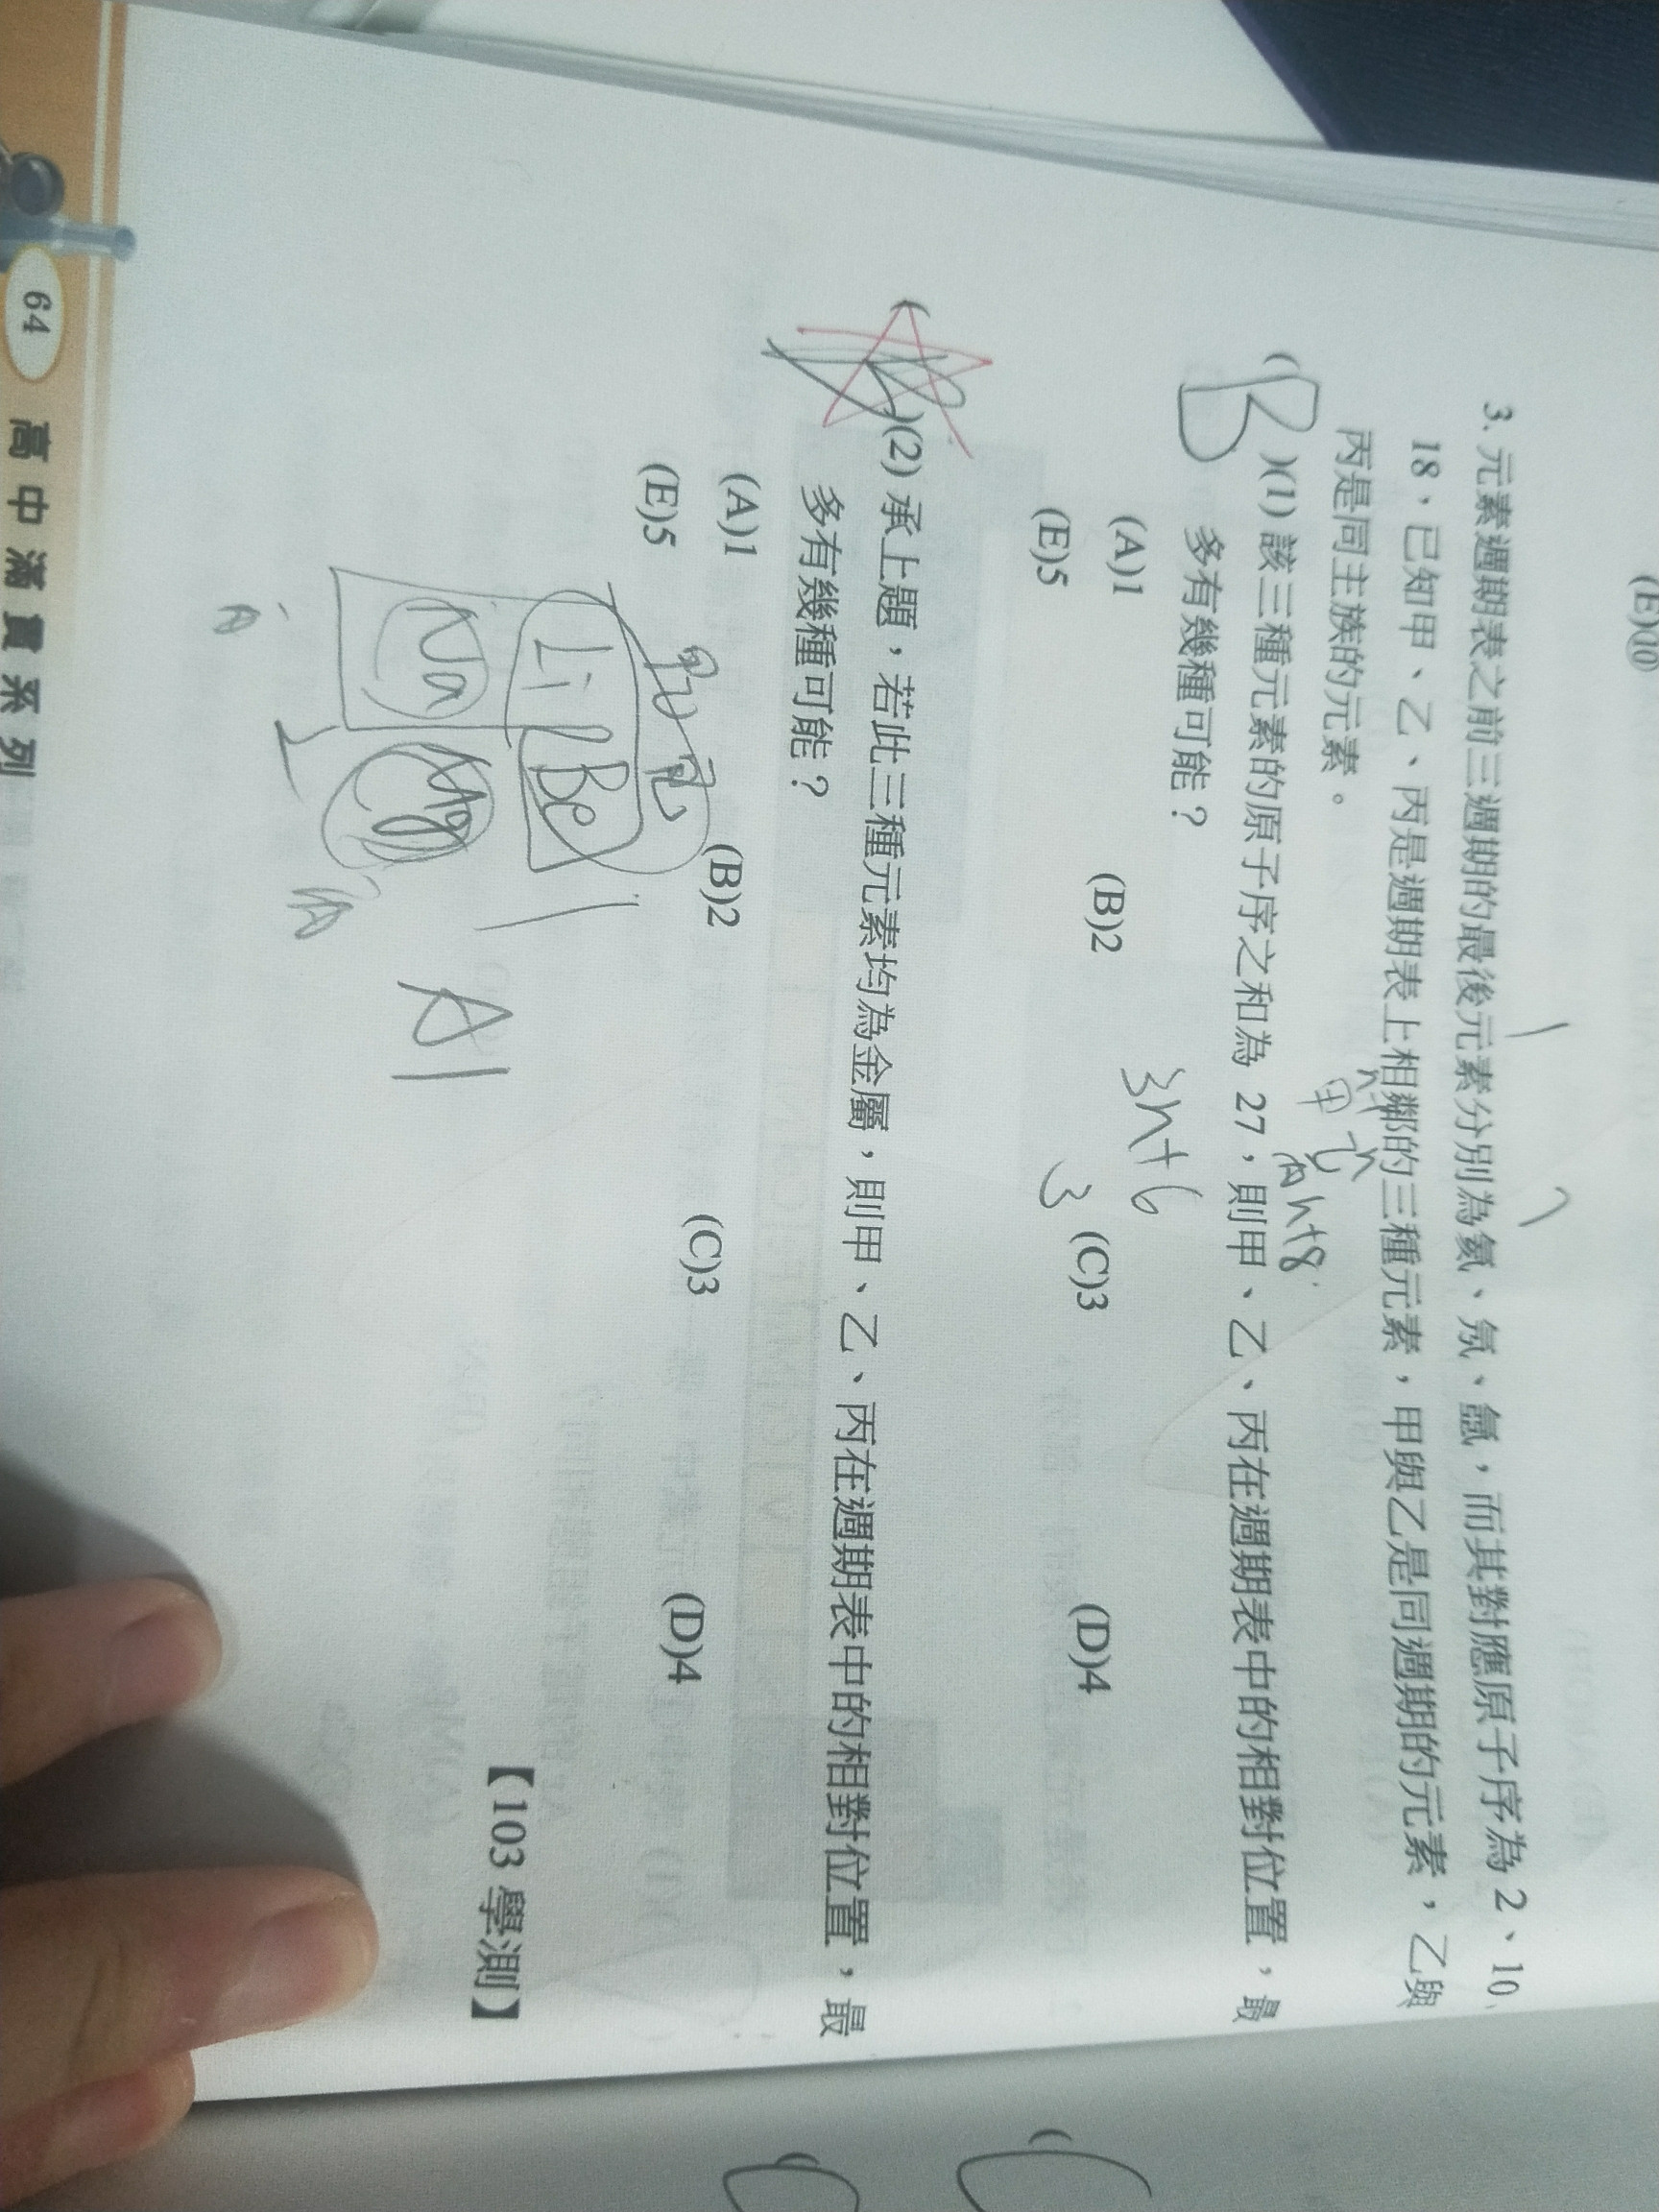 (E)⑩
3. 元素週期表之前三週期的最後元素分別為氦、氖、氬，而其對應原子序為 2、10、
18，已知甲、乙、丙是週期表上相鄰的三種元素，甲與乙是同週期的元素，乙與
丙是同主族的元素。
n-1 n
甲 乙
丙 n+8
( B )(1) 該三種元素的原子序之和為 27，則甲、乙、丙在週期表中的相對位置，最
多有幾種可能？
3n+6
3
(A)1 (B)2 (C)3 (D)4
(E)5
( )(2) 承上題，若此三種元素均為金屬，則甲、乙、丙在週期表中的相對位置，最
多有幾種可能？
(A)1 (B)2 (C)3 (D)4
(E)5
甲 乙
Li Be
Na Mg Al
【103 學測】
64 高中滿貫系列